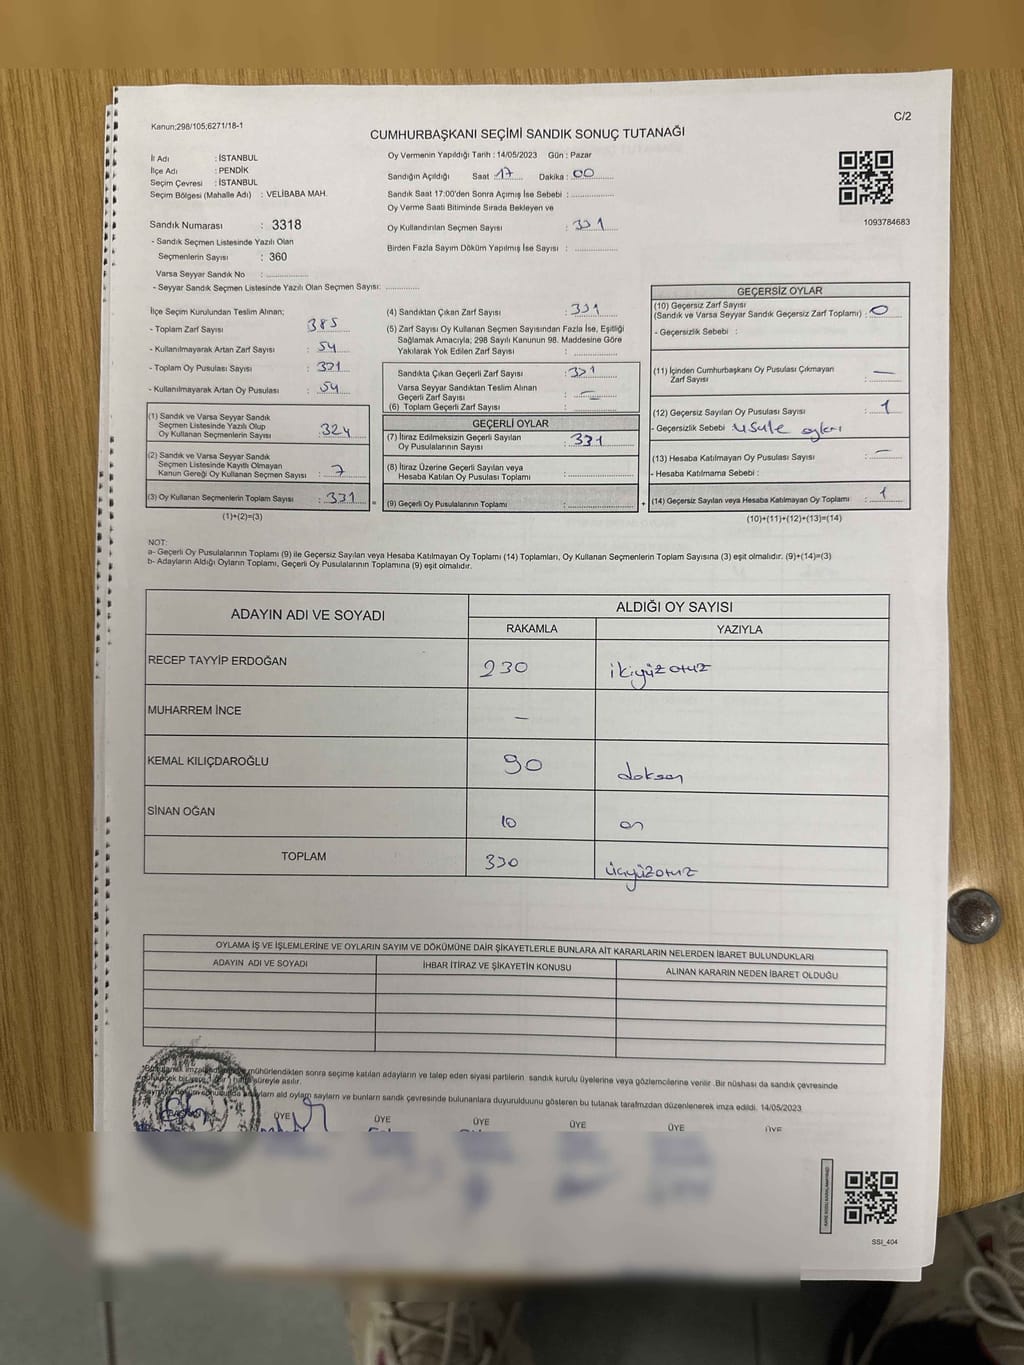 Kanun;298/105;6271/18-1
C/2
CUMHURBAŞKANI SEÇİMİ SANDIK SONUÇ TUTANAĞI
İl Adı : İSTANBUL
İlçe Adı : PENDİK
Seçim Çevresi : İSTANBUL
Seçim Bölgesi (Mahalle Adı) : VELİBABA MAH.
Sandık Numarası : 3318
- Sandık Seçmen Listesinde Yazılı Olan
Seçmenlerin Sayısı : 360
Varsa Seyyar Sandık No :
- Seyyar Sandık Seçmen Listesinde Yazılı Olan Seçmen Sayısı:
Oy Vermenin Yapıldığı Tarih : 14/05/2023 Gün : Pazar
Sandığın Açıldığı Saat 17 Dakika : 00
Sandık Saat 17:00'den Sonra Açımış İse Sebebi :
Oy Verme Saati Bitiminde Sırada Bekleyen ve
Oy Kullandırılan Seçmen Sayısı : 331
Birden Fazla Sayım Döküm Yapılmış İse Sayısı :
1093784683
İlçe Seçim Kurulundan Teslim Alınan;
- Toplam Zarf Sayısı : 385
- Kullanılmayarak Artan Zarf Sayısı : 54
- Toplam Oy Pusulası Sayısı : 331
- Kullanılmayarak Artan Oy Pusulası : 54
(1) Sandık ve Varsa Seyyar Sandık
Seçmen Listesinde Yazılı Olup
Oy Kullanan Seçmenlerin Sayısı : 324
(2) Sandık ve Varsa Seyyar Sandık
Seçmen Listesinde Kayıtlı Olmayan
Kanun Gereği Oy Kullanan Seçmen Sayısı : 7
(3) Oy Kullanan Seçmenlerin Toplam Sayısı : 331 =
(1)+(2)=(3)
(4) Sandıktan Çıkan Zarf Sayısı : 331
(5) Zarf Sayısı Oy Kullanan Seçmen Sayısından Fazla İse, Eşitliği
Sağlamak Amacıyla; 298 Sayılı Kanunun 98. Maddesine Göre
Yakılarak Yok Edilen Zarf Sayısı :
Sandıkta Çıkan Geçerli Zarf Sayısı : 331
Varsa Seyyar Sandıktan Teslim Alınan
Geçerli Zarf Sayısı : —
(6) Toplam Geçerli Zarf Sayısı :
GEÇERLİ OYLAR
(7) İtiraz Edilmeksizin Geçerli Sayılan
Oy Pusulalarının Sayısı : 331
(8) İtiraz Üzerine Geçerli Sayılan veya
Hesaba Katılan Oy Pusulası Toplamı :
(9) Geçerli Oy Pusulalarının Toplamı : +
GEÇERSİZ OYLAR
(10) Geçersiz Zarf Sayısı
(Sandık ve Varsa Seyyar Sandık Geçersiz Zarf Toplamı) : 0
- Geçersizlik Sebebi :
(11) İçinden Cumhurbaşkanı Oy Pusulası Çıkmayan
Zarf Sayısı : —
(12) Geçersiz Sayılan Oy Pusulası Sayısı : 1
- Geçersizlik Sebebi
(13) Hesaba Katılmayan Oy Pusulası Sayısı : —
- Hesaba Katılmama Sebebi :
(14) Geçersiz Sayılan veya Hesaba Katılmayan Oy Toplamı : 1
(10)+(11)+(12)+(13)=(14)
NOT:
a- Geçerli Oy Pusulalarının Toplamı (9) ile Geçersiz Sayılan veya Hesaba Katılmayan Oy Toplamı (14) Toplamları, Oy Kullanan Seçmenlerin Toplam Sayısına (3) eşit olmalıdır. (9)+(14)=(3)
b- Adayların Aldığı Oyların Toplamı, Geçerli Oy Pusulalarının Toplamına (9) eşit olmalıdır.
ADAYIN ADI VE SOYADI ALDIĞI OY SAYISI
RAKAMLA YAZIYLA
RECEP TAYYİP ERDOĞAN 230 ikiyüzotuz
MUHARREM İNCE —
KEMAL KILIÇDAROĞLU 90 doksan
SİNAN OĞAN 10 on
TOPLAM 330 üçyüzotuz
OYLAMA İŞ VE İŞLEMLERİNE VE OYLARIN SAYIM VE DÖKÜMÜNE DAİR ŞİKAYETLERLE BUNLARA AİT KARARLARIN NELERDEN İBARET BULUNDUKLARI
ADAYIN ADI VE SOYADI İHBAR İTİRAZ VE ŞİKAYETİN KONUSU ALINAN KARARIN NEDEN İBARET OLDUĞU
mühürlendikten sonra seçime katılan adayların ve talep eden siyasi partilerin sandık kurulu üyelerine veya gözlemcilerine verilir. Bir nüshası da sandık çevresinde
süreyle asılır.
oylam sayların ve bunların sandık çevresinde bulunanlara duyurulduunu gösteren bu tutanak tarafımzdan düzenlenerek imza edildi. 14/05/2023
ÜYE ÜYE ÜYE ÜYE ÜYE ÜYE
SSİ_404